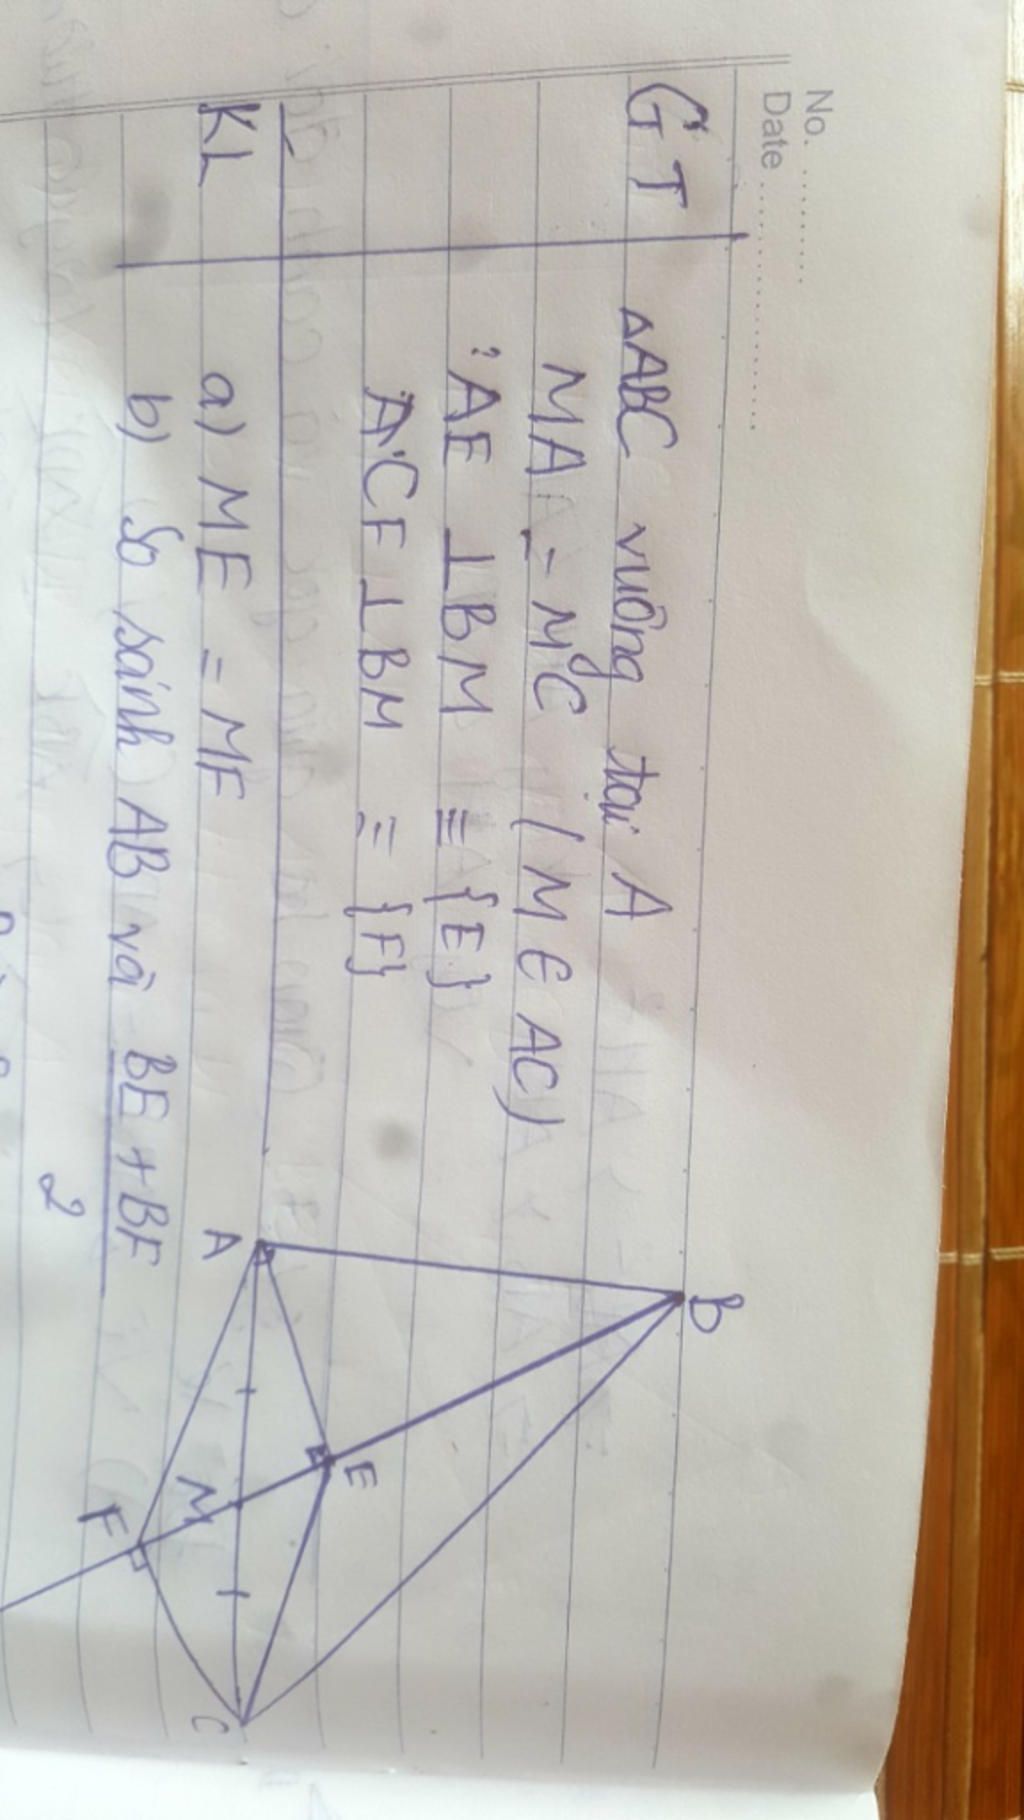 No.
Date
GT
ΔABC vuông tại A
MA = MC (M ∈ AC)
AE ⊥ BM ≡ {E}
CF ⊥ BM ≡ {F}
KL
a) ME = MF
b) So sánh AB và BE + BF
2
B
A
E
M
F
C